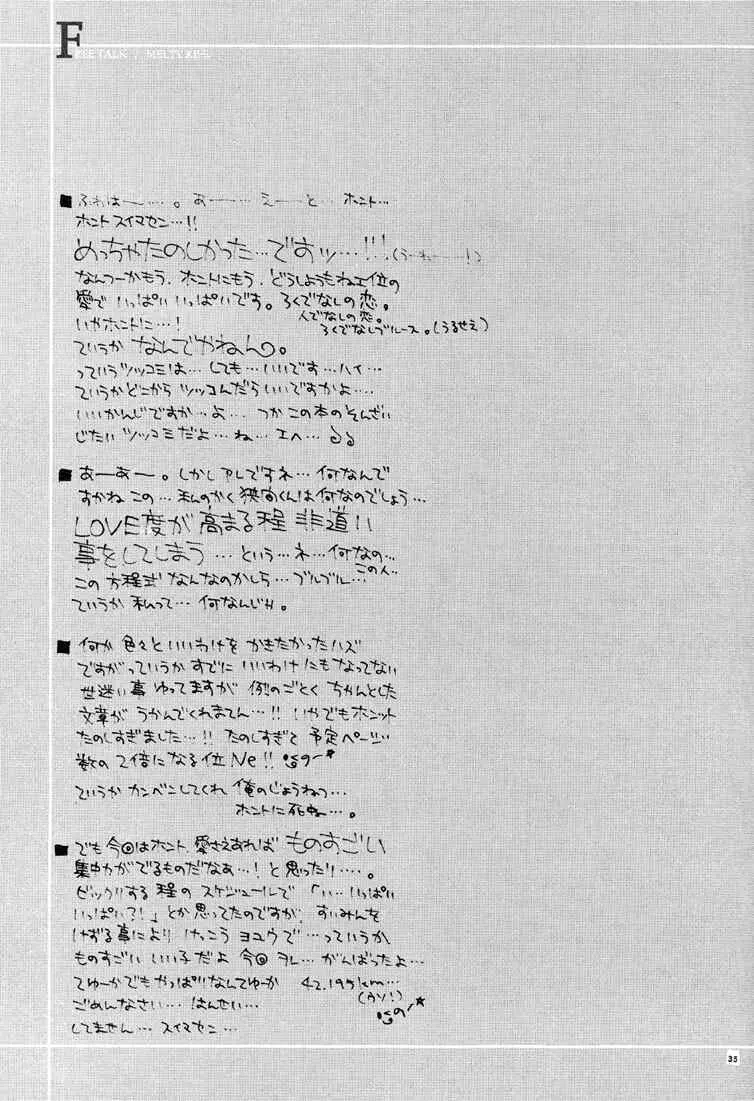 FREE TALK
■ ふわは〜…。あー…えーと…ホント…
ホントスイマセン…!!
めっちゃたのしかった…ですッ…!!!(うーねー!)
なんつーかもう、ホントにもう、どうしようもねェ位の
愛で いっぱい いっぱいです。ろくでなしの恋。
人でなしの恋。
いやホントに…!
ろくでなしブルース。(うるせえ)
ていうか なんでやねん。
っていうツッコミは…しても…いいです…ハイ…
ていうかどこから ツッコんだらいいですかよ…
いいかんじですか…よ…つか この本のそんざい
じたい ツッコミだよ…ね…エヘ…
■ あーあー。しかしアレですネ…何なんで
すかね この…私のかく くんは何なのでしょう…
LOVE度が高まる程 非道い
事をしてしまう…という…ネ…何なの…
この人…
この 方程式 なんなのかしら…ブルブル…
ていうか 私って…何なんじゃ。
■ 何か 色々と いいわけを かきたかったハズ
ですがっていうか すでに いいわけにもなってない
世迷い事 ゆってますが 例のごとく ちゃんとした
文章が うかんでくれません…!! いやでもホンット
たのしすぎました…!! たのしすぎて 予定ページ
数の 2倍になる位 Ne!!
ていうか カンベンしてくれ 俺のじょうねつ…
ホントに死ぬ…。
■ でも 今回はホント、愛さえあれば ものすごい
集中力がでるものだなあ…! と思ったり…。
ビックリする程の スケジュールで 「い…いっぱい
いっぱい?!」とか思ってたのですが、すいみんを
けずる事により けっこう ヨユウで…っていうか
ものすごい いい子だよ 今回 オレ…がんばったよ…
てゆーかでもやっぱりなんてゆーか 42.195km…
(ウソ!)
ごめんなさい…はんせい…
してません…スイマセン…
35